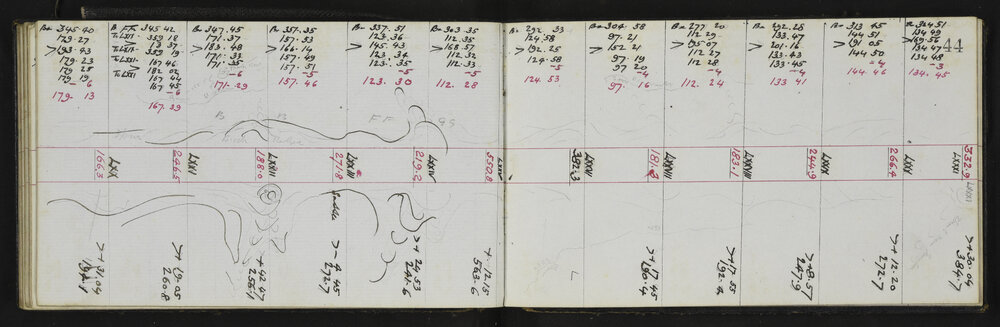 Bn 345.40
179.27
> 193.43
179.23
179.25
179 19
- 6
179. 13
345 42
To LXXI. 359 18
> 13 37
To LXXI. 359 19
167 46
> 182 02
167 42
167 45
-6
167.39
Bn 347.45
171.37
> 183.48
171.33
171.35
-6
171.29
Bn 357.35
157.53
> 166.14
157.49
157.51
-5
157. 46
Bn 337. 51
123.36
> 145.43
123.34
123.35
-5
123. 30
Bn 303.35
112.35
> 168.57
112.32
112.33
-5
112. 28
Bn 292. 33
124.58
> 192.25
124.58
-5
124. 53
Bn 304. 58
97.21
> 152 21
97.19
97 20
-4
97. 16
Bn 277. 20
112 29
> 195 07
112 27
112 28
-4
112. 24
Bn 292.28
133.47
> 201.16
133.43
133.45
-4
133 41
Bn 313 45
144 51
> 191 05
144.50
-4
144. 46
Bn 324 51
134 49
> 169.56
134 47
134 48
-3
134. 45
44
B
B
F F
G G
166.3
LXX
246.5
LXXI
188.0
LXXII
271.8
LXXIII
219.2
LXXIV
550.8
LXXV
382.3
LXXVI
181.3
LXXVII
183.1
LXXVIII
244.9
LXXIX
266.4
LXXX
332.9
LXXXI
LXXXI
Saddle
> + 31.04
194.1
> + 19.05
260.8
> + 42.47
256.1
> - 4 45
272.7
> + 24.53
241.6
> + 12.15
563.6
> + 17.45
190.4
> + 17.55
192.4
> + 8.57
247.9
> + 12.20
272.7
> + 30.04
384.7